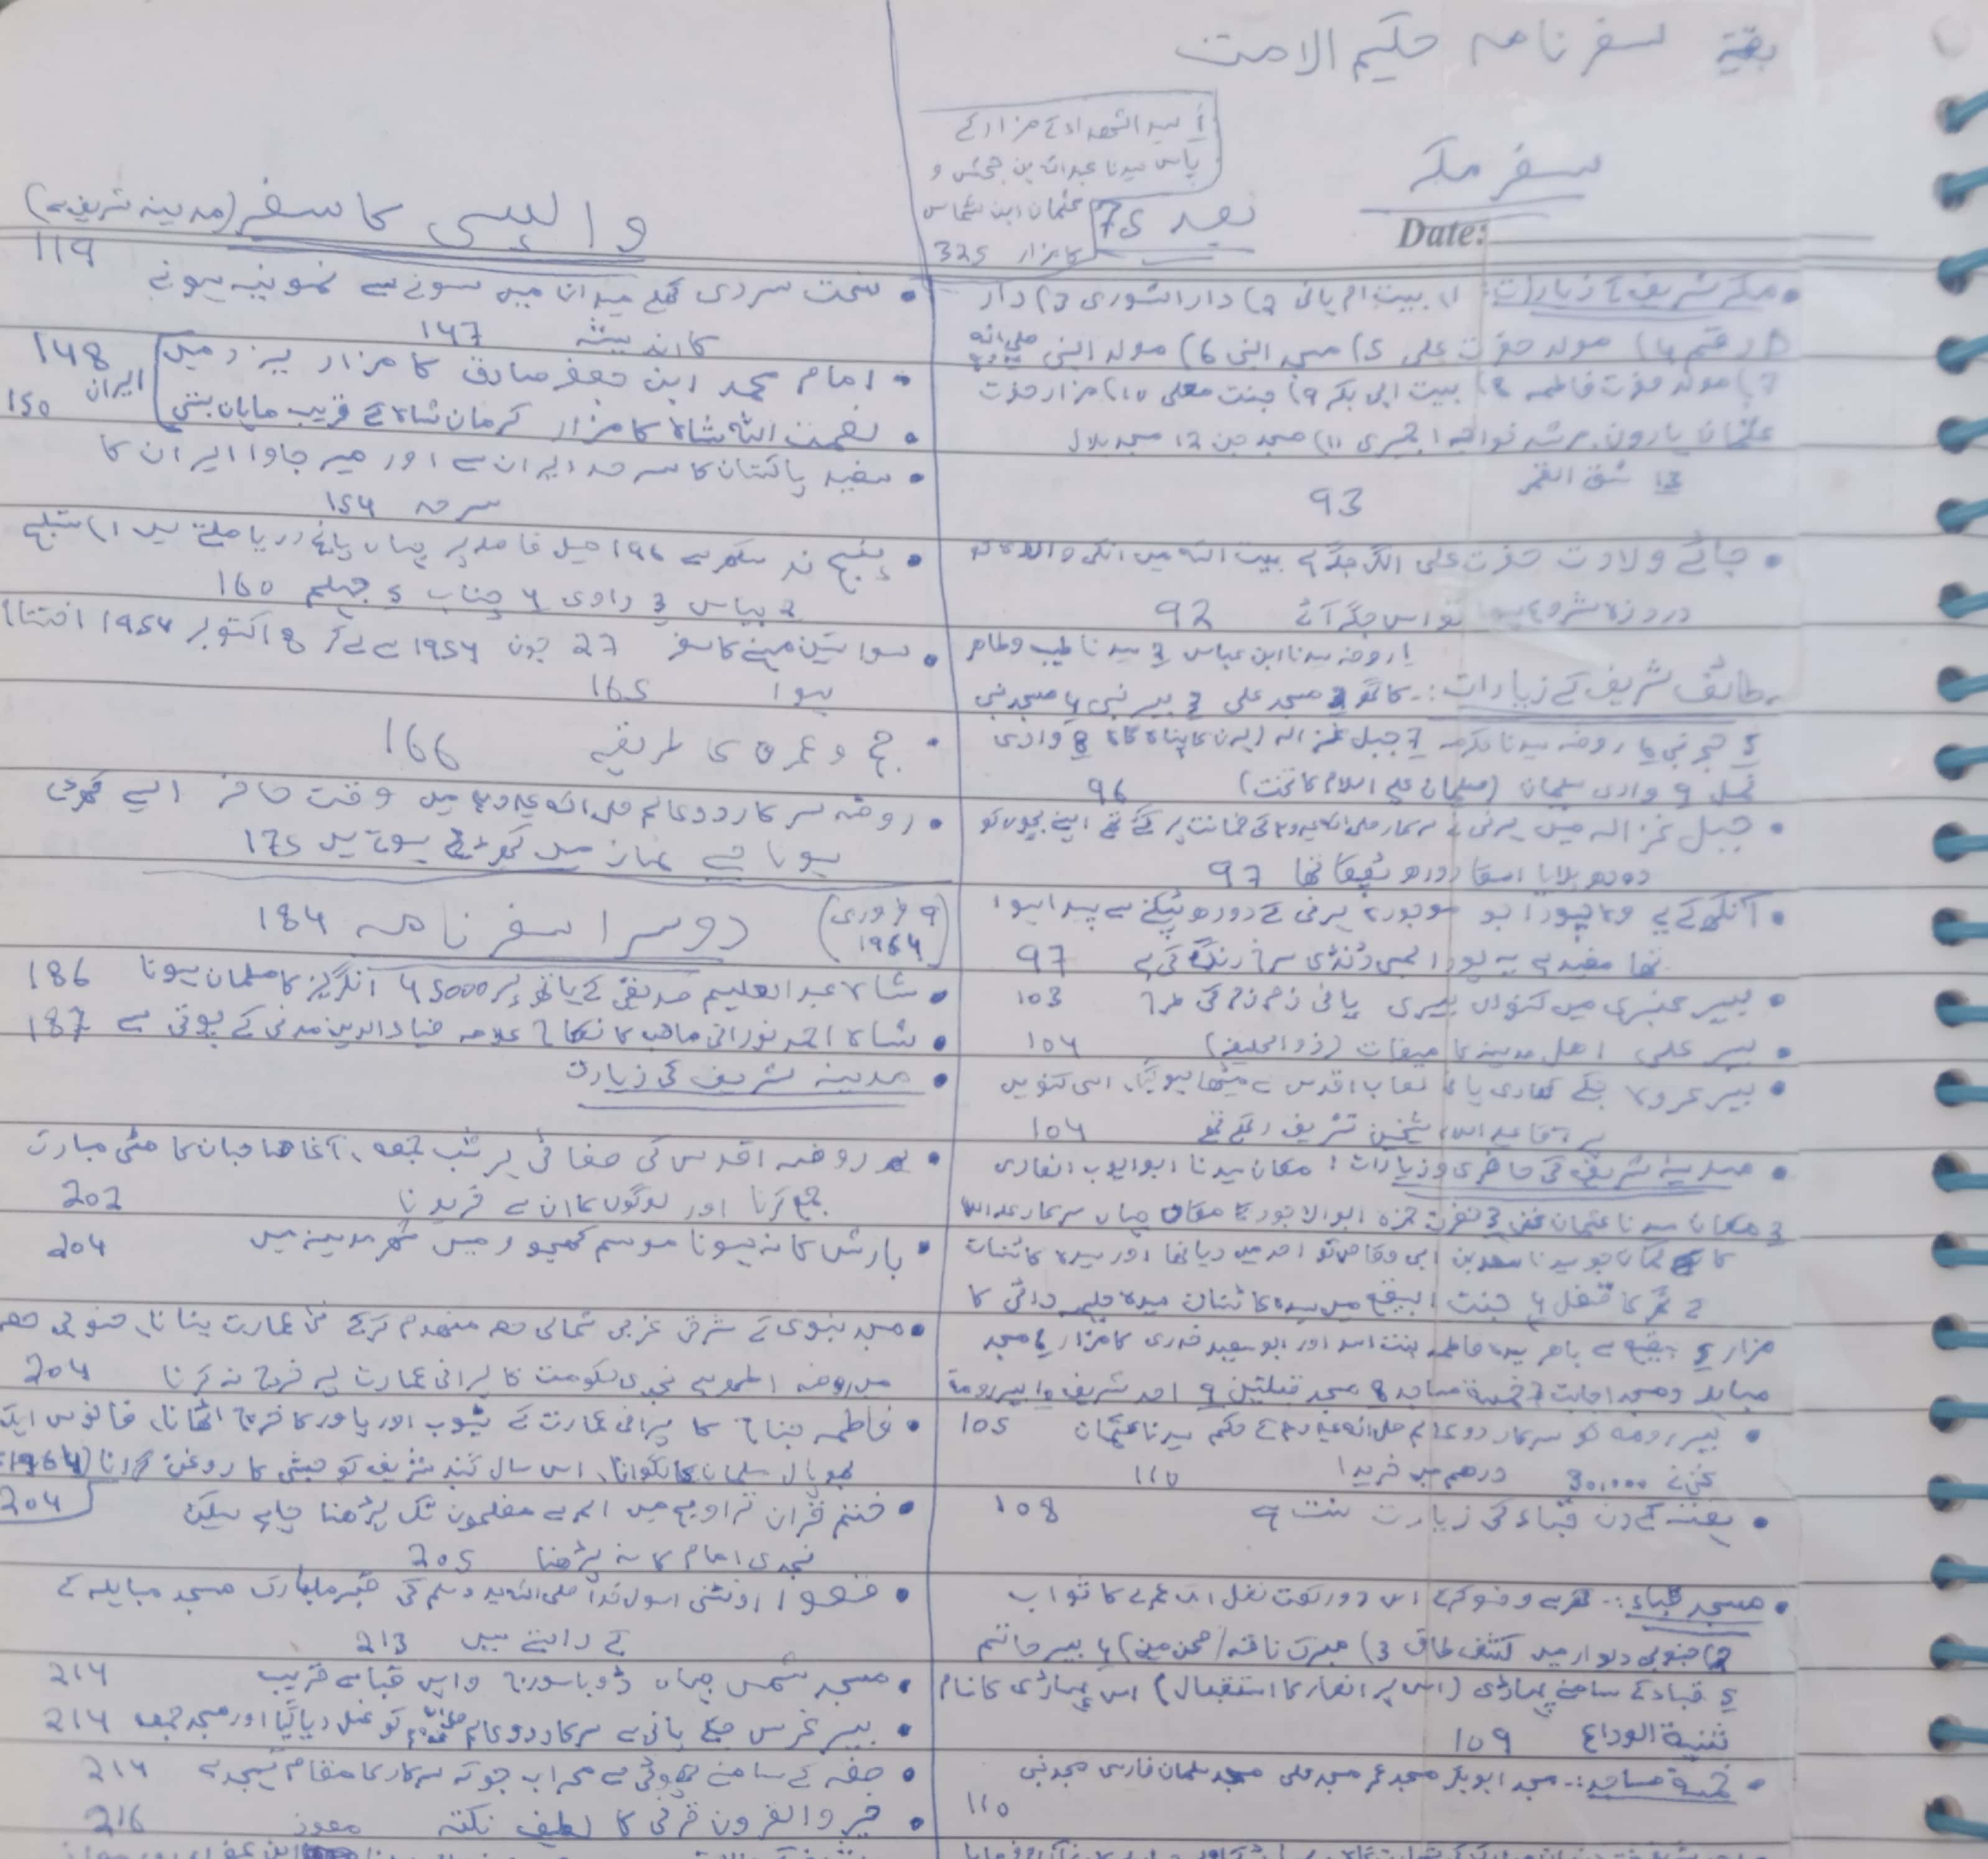 بقیہ سفر نامہ حکیم الامت
سفر مکہ
Date:
بعد 75
1 سید الشھداء کے مزار کے
پاس سیدنا عبداللہ بن جحش و
عثمان ابن شماس
کا مزار 325
• مکہ شریف کے زیارات: 1) بیت ام ہانی 2) دار الشوری 3) دار
ارقم 4) مولد حضرت علی 5) مسجد النبی 6) مولد النبی صلی اللہ علیہ وسلم
7) مولد حضرت فاطمہ 8) بیت ابی بکر 9) جنت معلی 10) مزار حضرت
عثمان ہارون مرشد خواجہ اجمیری 11) مسجد جن 12 مسجد بلال
13 شق القمر 93
• جائے ولادت حضرت علی الگ جگہ ہے بیت اللہ میں انکی والدہ کو
درد زہ شروع ہوا تو اس جگہ آئے 92
1 روضہ سیدنا ابن عباس 2 سیدنا طیب و طاہر
• طائف شریف کے زیارات:۔ کا گھر مسجد علی 3 بیر نبی 4 مسجد نبی
5 حجر نبی 6 روضہ سیدنا عکرمہ 7 جبل غزالہ (ہرن کا پناہ گاہ) 8 وادی
نمل 9 وادی سلیمان (سلیمان علیہ السلام کا تخت) 96
• جبل غزالہ میں ہرنی نے سرکار صلی اللہ علیہ وسلم کی ضمانت پر گئے تھے اپنے بچوں کو
دودھ پلایا اسکا دودھ ٹپکا تھا 97
• آنکھ کے لیے وہ پودا جو موجودہ ہرنی کے دودھ ٹپکنے سے پیدا ہوا
تھا مفید ہے یہ پودا جسکی ڈنڈی سرخ رنگ کی ہے 97
• بیر عنبری میں کنواں ہیری پانی زم زم کی طرح 103
• بیر علی اھل مدینہ کا میقات (ذوالحلیفہ) 104
• بیر عروہ جسکے کھاری پانی لعاب اقدس سے میٹھا ہو گیا، اسی کنویں
پر آقا علیہ السلام شیخین تشریف رکھتے تھے 104
• مدینہ شریف کی حاضری و زیارات: مکان سیدنا ابو ایوب انصاری
2 مکان سیدنا عثمان غنی 3 حضرت حمزہ ابو الاجور کا مکان جہاں سرکار علیہ السلام
کا کمان جو سیدنا سعد بن ابی وقاص کو احد میں دیا تھا اور سیدہ کائنات
کے گھر کا قفل 4 جنت البقیع میں سیدہ کائنات سیدہ حلیمہ دائی کا
مزار 5 بقیع سے باھر سیدہ فاطمہ بنت اسد اور ابو سعید خدری کا مزار 6 مسجد
مباہلہ و مسجد اجابت 7 خمسۃ مساجد 8 مسجد قبلتین 9 احد شریف 10 بیر رومۃ
105
• بیر رومہ کو سرکار دو عالم صلی اللہ علیہ وسلم کے حکم سیدنا عثمان
غنی نے 30,000 درھم میں خریدا 110
• ہفتہ کے دن قباء کی زیارت سنت ہے 108
• مسجد قباء:۔ گھر سے وضو کرکے اس دو رکعت نفل ایک عمرے کا ثواب
2) جنوبی دیوار میں کشف طاق 3) مبرک ناقہ (صحن میں) 4 بیر خاتم
5 قباء کے سامنے پہاڑی (اس پر انصار کا استقبال) اس پہاڑی کا نام
ثنیۃ الوداع 109
• خمسۃ مساجد:۔ مسجد ابوبکر مسجد عمر مسجد علی مسجد سلمان فارسی مسجد نبی
110
واپسی کا سفر (مدینہ شریف سے)
119
• سخت سردی کھلے میدان میں سونے سے نمونیہ ہونے
کا اندیشہ 147
• امام محمد ابن جعفر صادق کا مزار یزد میں 148
ایران
• نعمت اللہ شاہ کا مزار کرمان شاہ کے قریب ماہان بستی 150
• سفید پاکستان کا سرحد ایران سے اور میر جاوا ایران کا
سرحد 154
• پنج ند سکھر سے 196 میل فاصلہ پر یہاں پانچ دریا ملتے ہیں 1) ستلج
2 بیاس 3 راوی 4 چناب 5 جہلم 160
• سوا تین مہینے کا سفر 27 جون 1954 سے لے کر 8 اکتوبر 1954 اختتام
ہوا 165
• حج و عمرہ کا طریقہ 166
• روضہ سرکار دو عالم صلی اللہ علیہ وسلم میں وقت حاضر ایسے کھڑی
ہونا جیسے نماز میں کھڑے ہوتے ہیں 175
دوسرا سفر نامہ 184 (9 فروری 1964)
• شاہ عبد العلیم صدیقی کے ہاتھ پر 45000 انگریز کا مسلمان ہونا 186
• شاہ احمد نورانی صاحب کا نکاح علامہ ضیاء الدین مدنی کے پوتی سے 187
• مدینہ شریف کی زیارت
• روضہ اقدس کی صفائی ہر شب جمعہ، آغا صاحبان کا مٹی مبارک
جمع کرنا اور لوگوں کا ان سے خریدنا 202
• بارش کا نہ ہونا موسم کھجور میں شہر مدینہ میں 204
• مسجد نبوی کے شرقی غربی شمالی حصہ منھدم کرکے نئی عمارت بنانا، جنوبی حصہ
میں روضہ اطھر ہے نجدی حکومت کا پرانی عمارت پہ خرچ نہ کرنا 204
• فاطمہ جناح کا پرانی عمارت کے ٹیوب اور پاور کا خرچ اٹھانا، فانوس ایک
بھوپال سلمان کا لگوانا، اس سال گنبد شریف کو حبشی کا روغن کرانا (1964)
204
• ختم قرآن تراویح میں الم سے مفلحون تک پڑھنا چاہیے لیکن
نجدی امام کا نہ پڑھنا 205
• قصوا اونٹنی رسول خدا صلی اللہ علیہ وسلم کی قبر مبارک مسجد مباہلہ کے
کے راستے میں 213
• مسجد شمس جہاں ڈوبا سورج واپس قبا کے قریب 214
• بیر غرس جسکے پانی سے سرکار دو عالم صلی اللہ علیہ وسلم کو غسل دیا گیا اور مسجد جمعہ 214
• صفہ کے سامنے چھوٹی سے محراب جو کہ سرکار کا مقام تہجد ہے 214
• خیر والقرون قرنی کا لطیف نکتہ 216